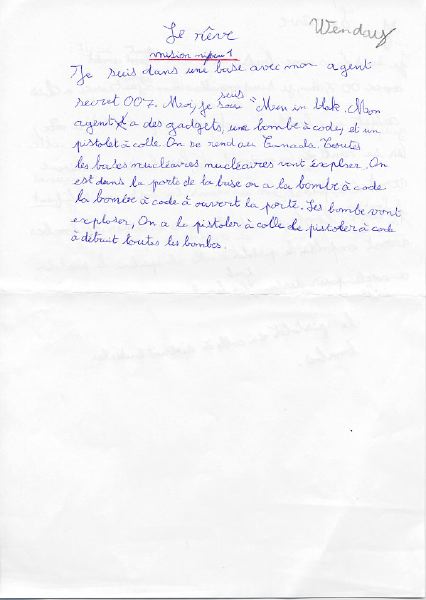 Le rêve
Wenday
mision niveau 1
Je suis dans une base avec mon agent
secret 007. Moi, je suis "Men in blak. Mon
agent a des gadgets, une bombe à code, et un
pistolet à colle. On se rend au Canada. Toutes
les bases nucléaires nucléaires vont exploser. On
est dans la porte de la base on a la bombe à code
la bombe à code à ouvert la porte. Les bombe vont
exploser, On a le pistoler à colle le pistoler à code
à détruit toutes les bombes.